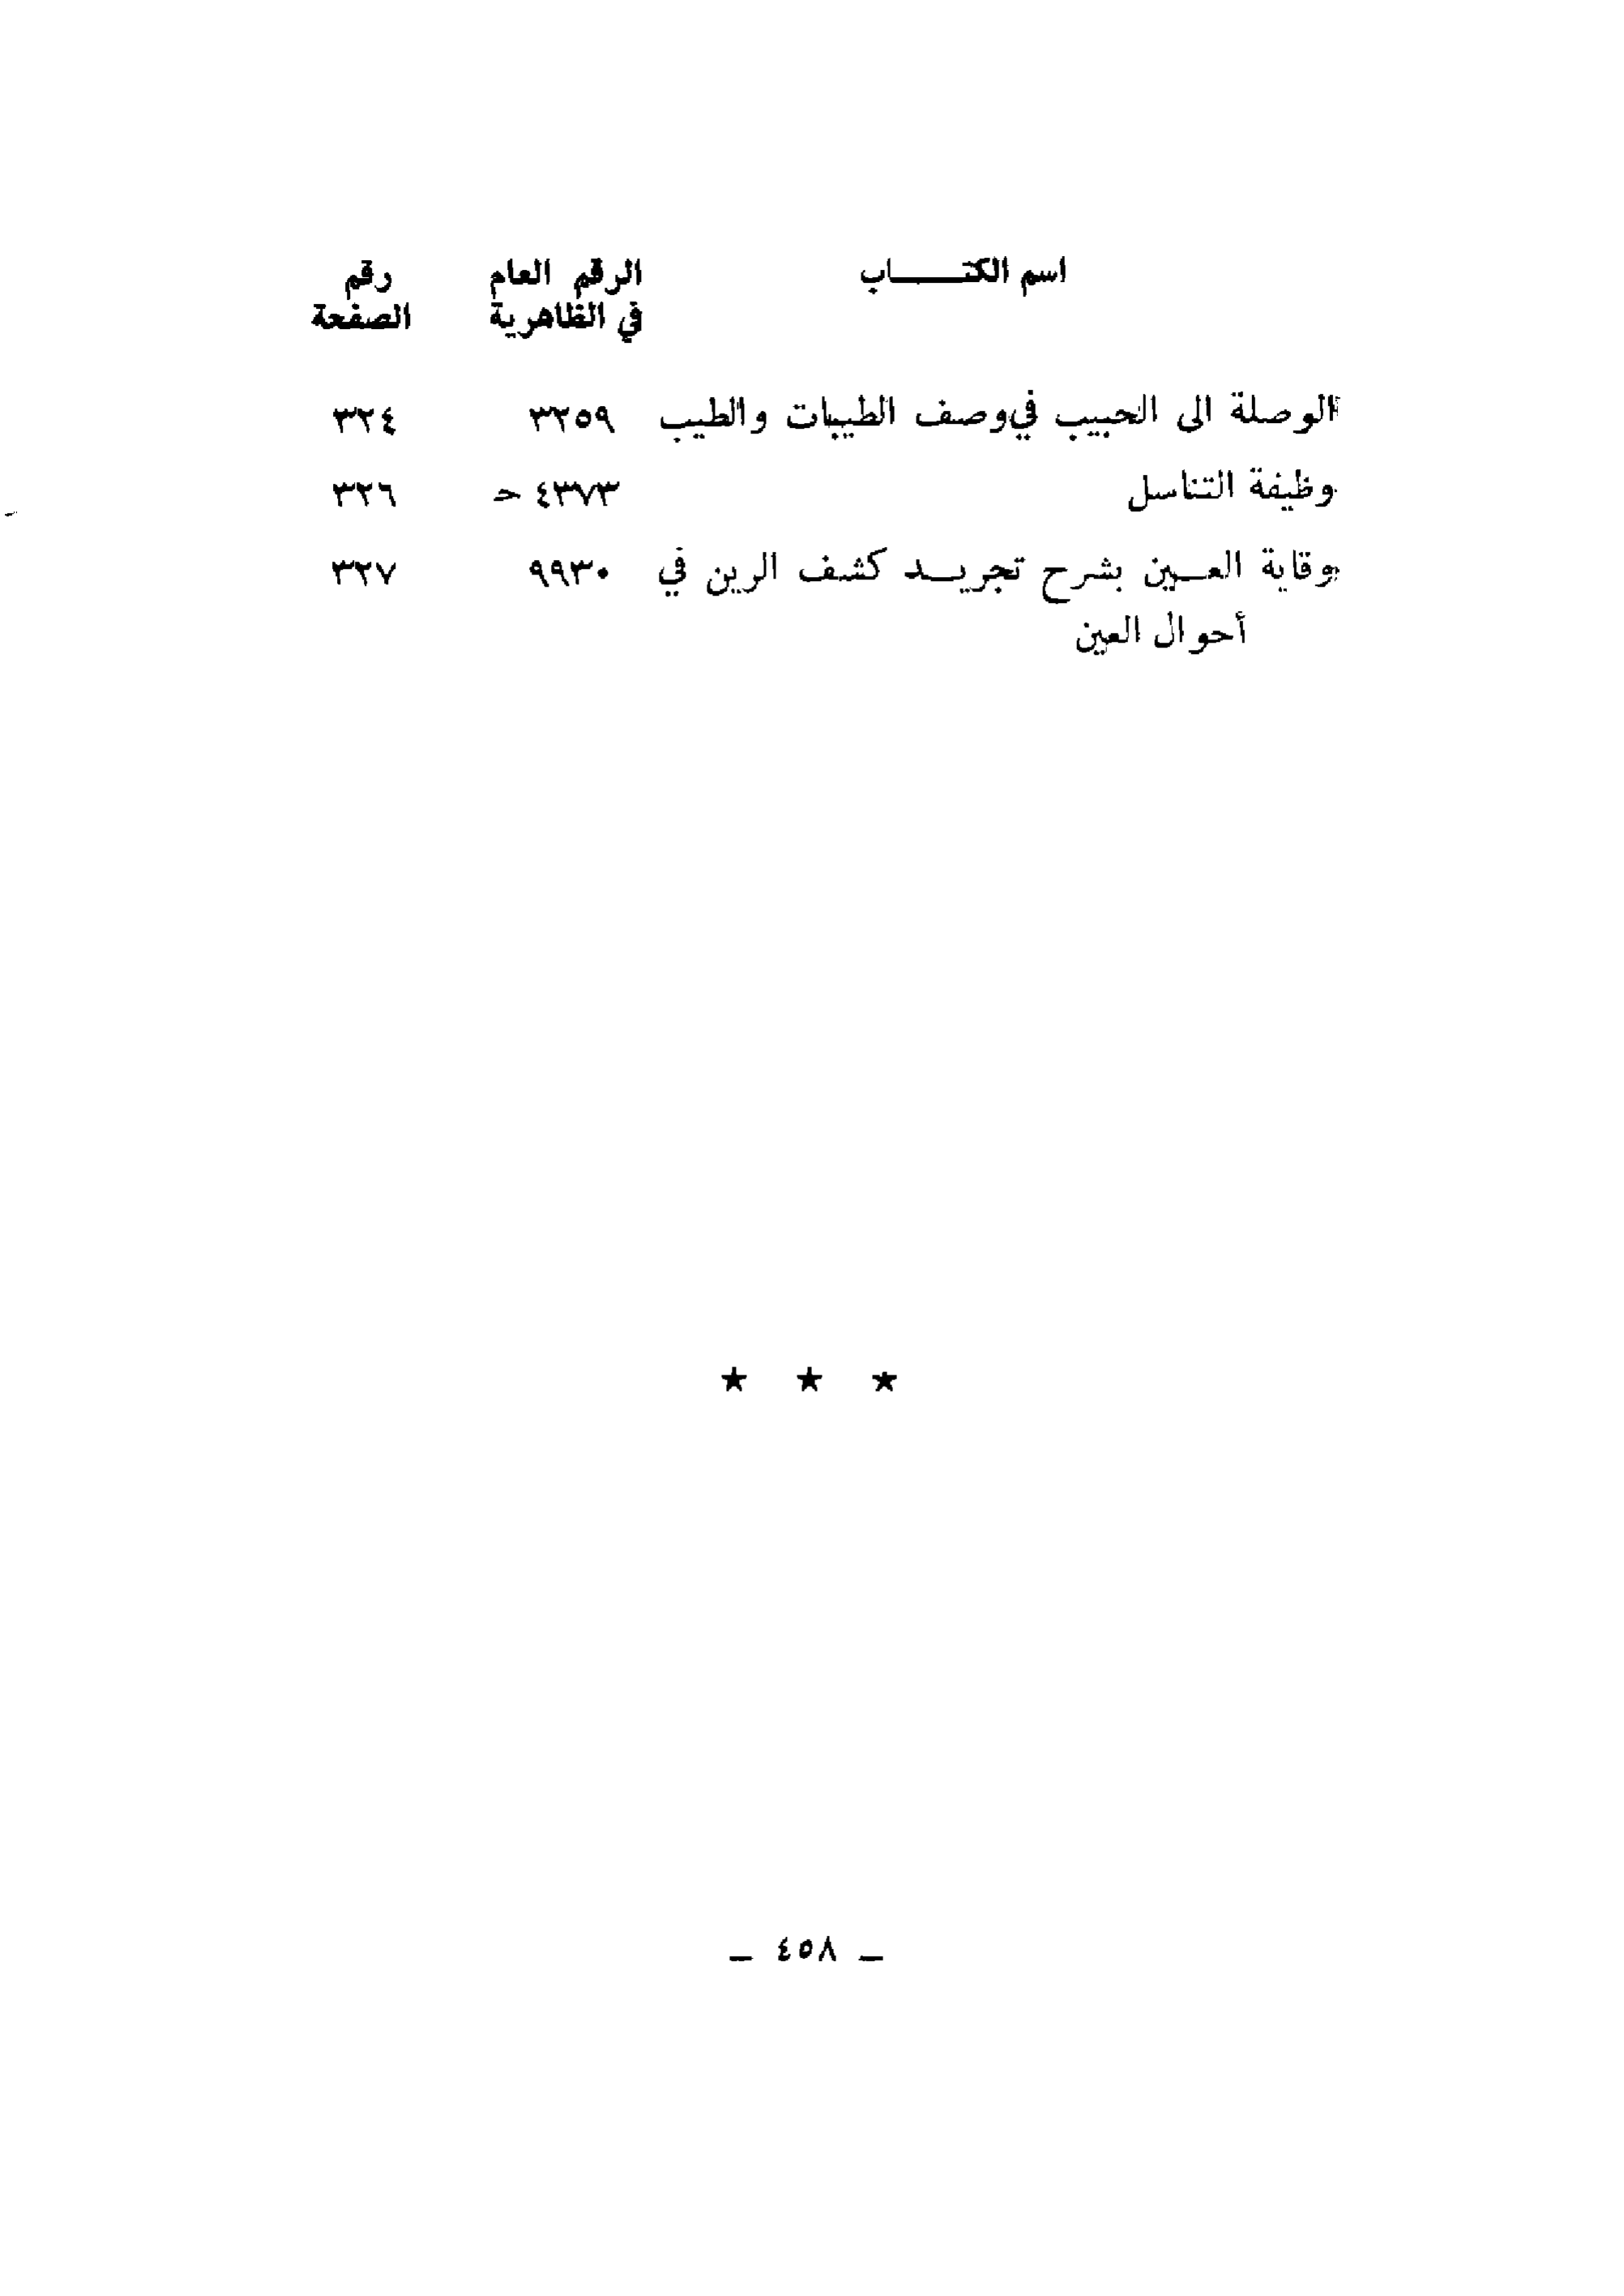 اسم الكتـــــاب الرقم العام رقم
في الظاهرية الصفحة
الوصلة الى الحبيب في وصف الطيبات والطيب ٣٢٥٩ ٣٢٤
وظيفة التناسل ٤٣٧٣ حـ ٣٢٦
وقاية العـــين بشرح تجريـــد كشف الرين في ٩٩٣٠ ٣٢٧
أحوال العين
★ ★ ★
_ ٤٥٨ _